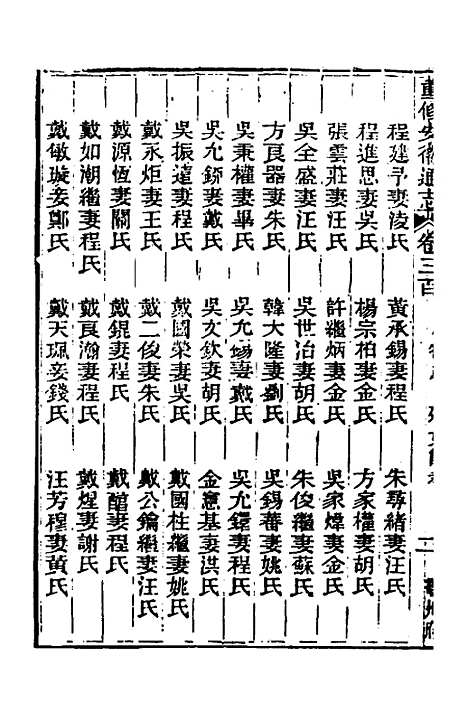 重修安徽通志 卷三百
程建予妻淩氏 黃承錫妻程氏 朱尋緒妻汪氏
程進思妻吳氏 楊宗柏妻金氏 方家權妻胡氏
張雲莊妻汪氏 許繼炳妻金氏 吳家煒妻金氏
吳全盛妻汪氏 吳世治妻胡氏 朱俊繼妻蘇氏
方良器妻朱氏 韓大隆妻劉氏 吳錫蕃妻姚氏
吳秉權妻畢氏 吳允錫妻戴氏 吳允鐀妻程氏
吳允鉨妻戴氏 吳文欽妻胡氏 金憲基妻洪氏
吳振遠妻程氏 戴國榮妻吳氏 戴國柱繼妻姚氏
戴永炬妻王氏 戴二俊妻朱氏 戴公鑰繼妻汪氏
戴源恆妻關氏 戴錕妻程氏 戴館妻程氏
戴如潮繼妻程氏 戴良瀚妻程氏 戴煋妻謝氏
戴敏璇妾鄭氏 戴天珮妾錢氏 汪芳程妻黃氏